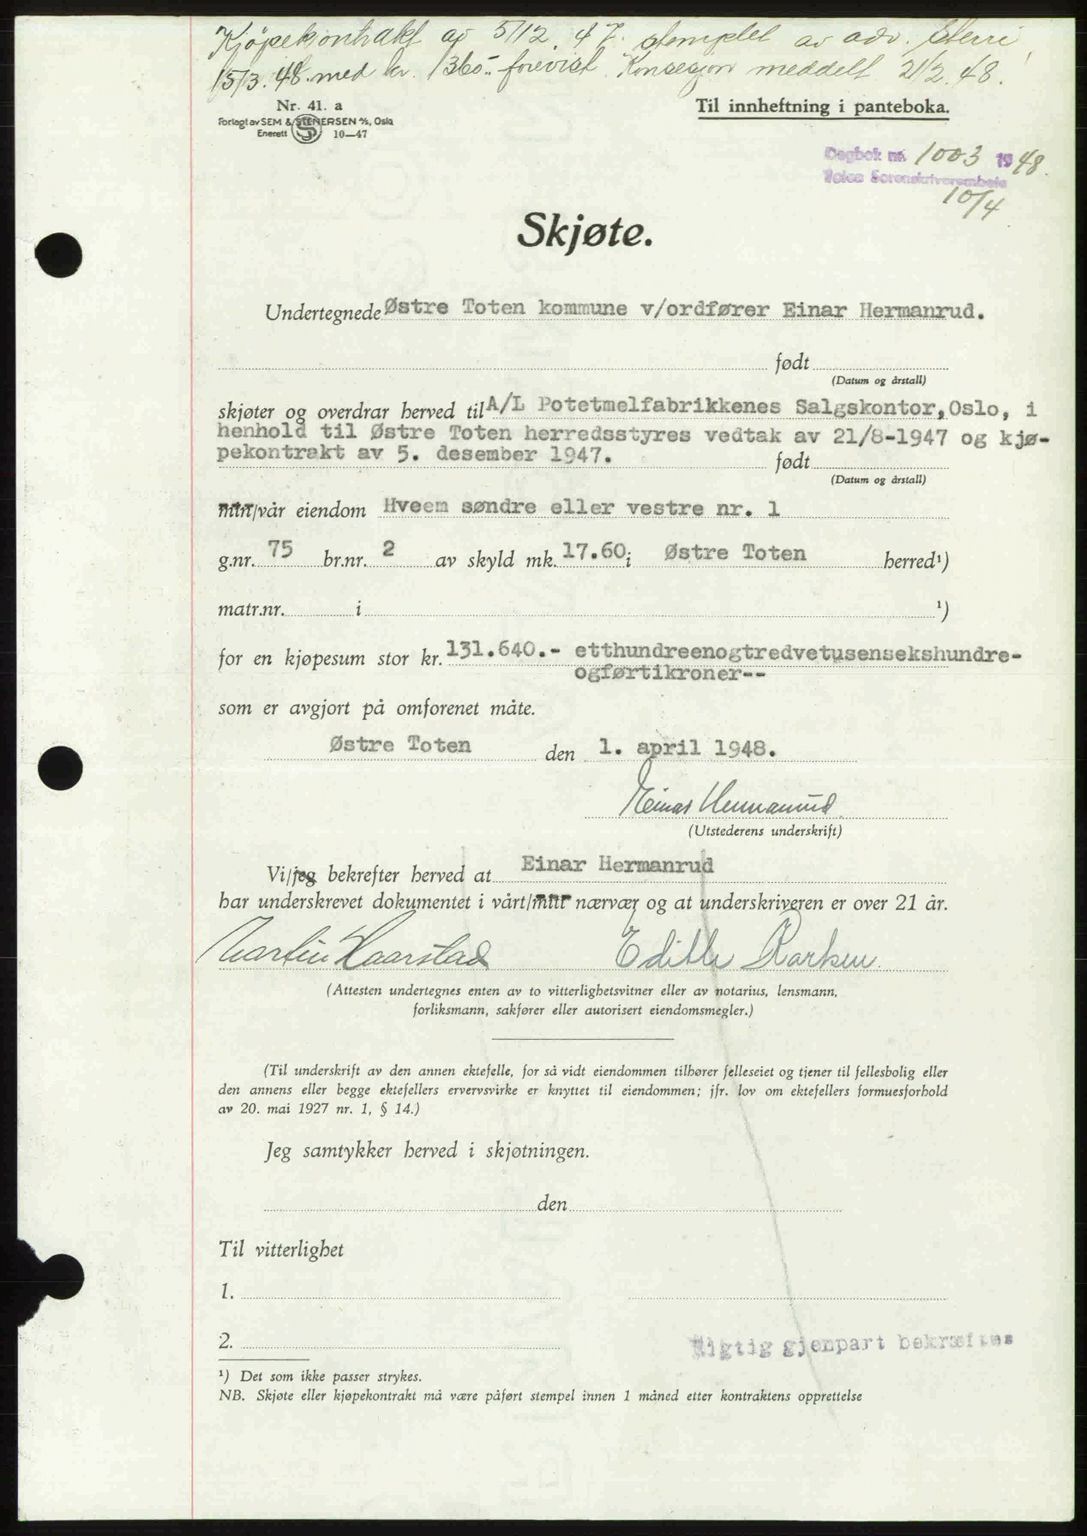 Kjøpekontrakt av 5/12. 47. stemplet av adv. Sterri
15/3. 48. med kr. 1360.- forevist. Konsesjon meddelt 21/2. 48.
Nr. 41. a
Forlagt av SEM & STENERSEN A/S, Oslo
Enerett 10—47
Til innheftning i panteboka.
Dagbok nr. 1003 1948.
Toten Sorenskriverembete
10/4
Skjøte.
Undertegnede Østre Toten kommune v/ordfører Einar Hermanrud.
født
(Datum og årstall)
skjøter og overdrar herved til A/L Potetmelfabrikkenes Salgskontor, Oslo, i
henhold til Østre Toten herredsstyres vedtak av 21/8-1947 og kjø-
pekontrakt av 5. desember 1947.
født
(Datum og årstall)
min/vår eiendom Hveem søndre eller vestre nr. 1
g.nr. 75 br.nr. 2 av skyld mk. 17.60 i Østre Toten herred¹)
matr.nr. i ¹)
for en kjøpesum stor kr. 131.640.- etthundreenogtredvetusensekshundre-
ogførtikroner--
som er avgjort på omforenet måte.
Østre Toten den 1. april 1948.
Einar Hermanrud
(Utstederens underskrift)
Vi/jeg bekrefter herved at Einar Hermanrud
har underskrevet dokumentet i vårt/mitt nærvær og at underskriveren er over 21 år.
Martin Haarstad Edith Karlsen
(Attesten undertegnes enten av to vitterlighetsvitner eller av notarius, lensmann,
forliksmann, sakfører eller autorisert eiendomsmegler.)
(Til underskrift av den annen ektefelle, for så vidt eiendommen tilhører felleseiet og tjener til fellesbolig eller
den annens eller begge ektefellers ervervsvirke er knyttet til eiendommen; jfr. lov om ektefellers formuesforhold
av 20. mai 1927 nr. 1, § 14.)
Jeg samtykker herved i skjøtningen.
den
Til vitterlighet
1.
2.
Rigtig gjenpart bekræftes
¹) Det som ikke passer strykes.
NB. Skjøte eller kjøpekontrakt må være påført stempel innen 1 måned etter kontraktens opprettelse